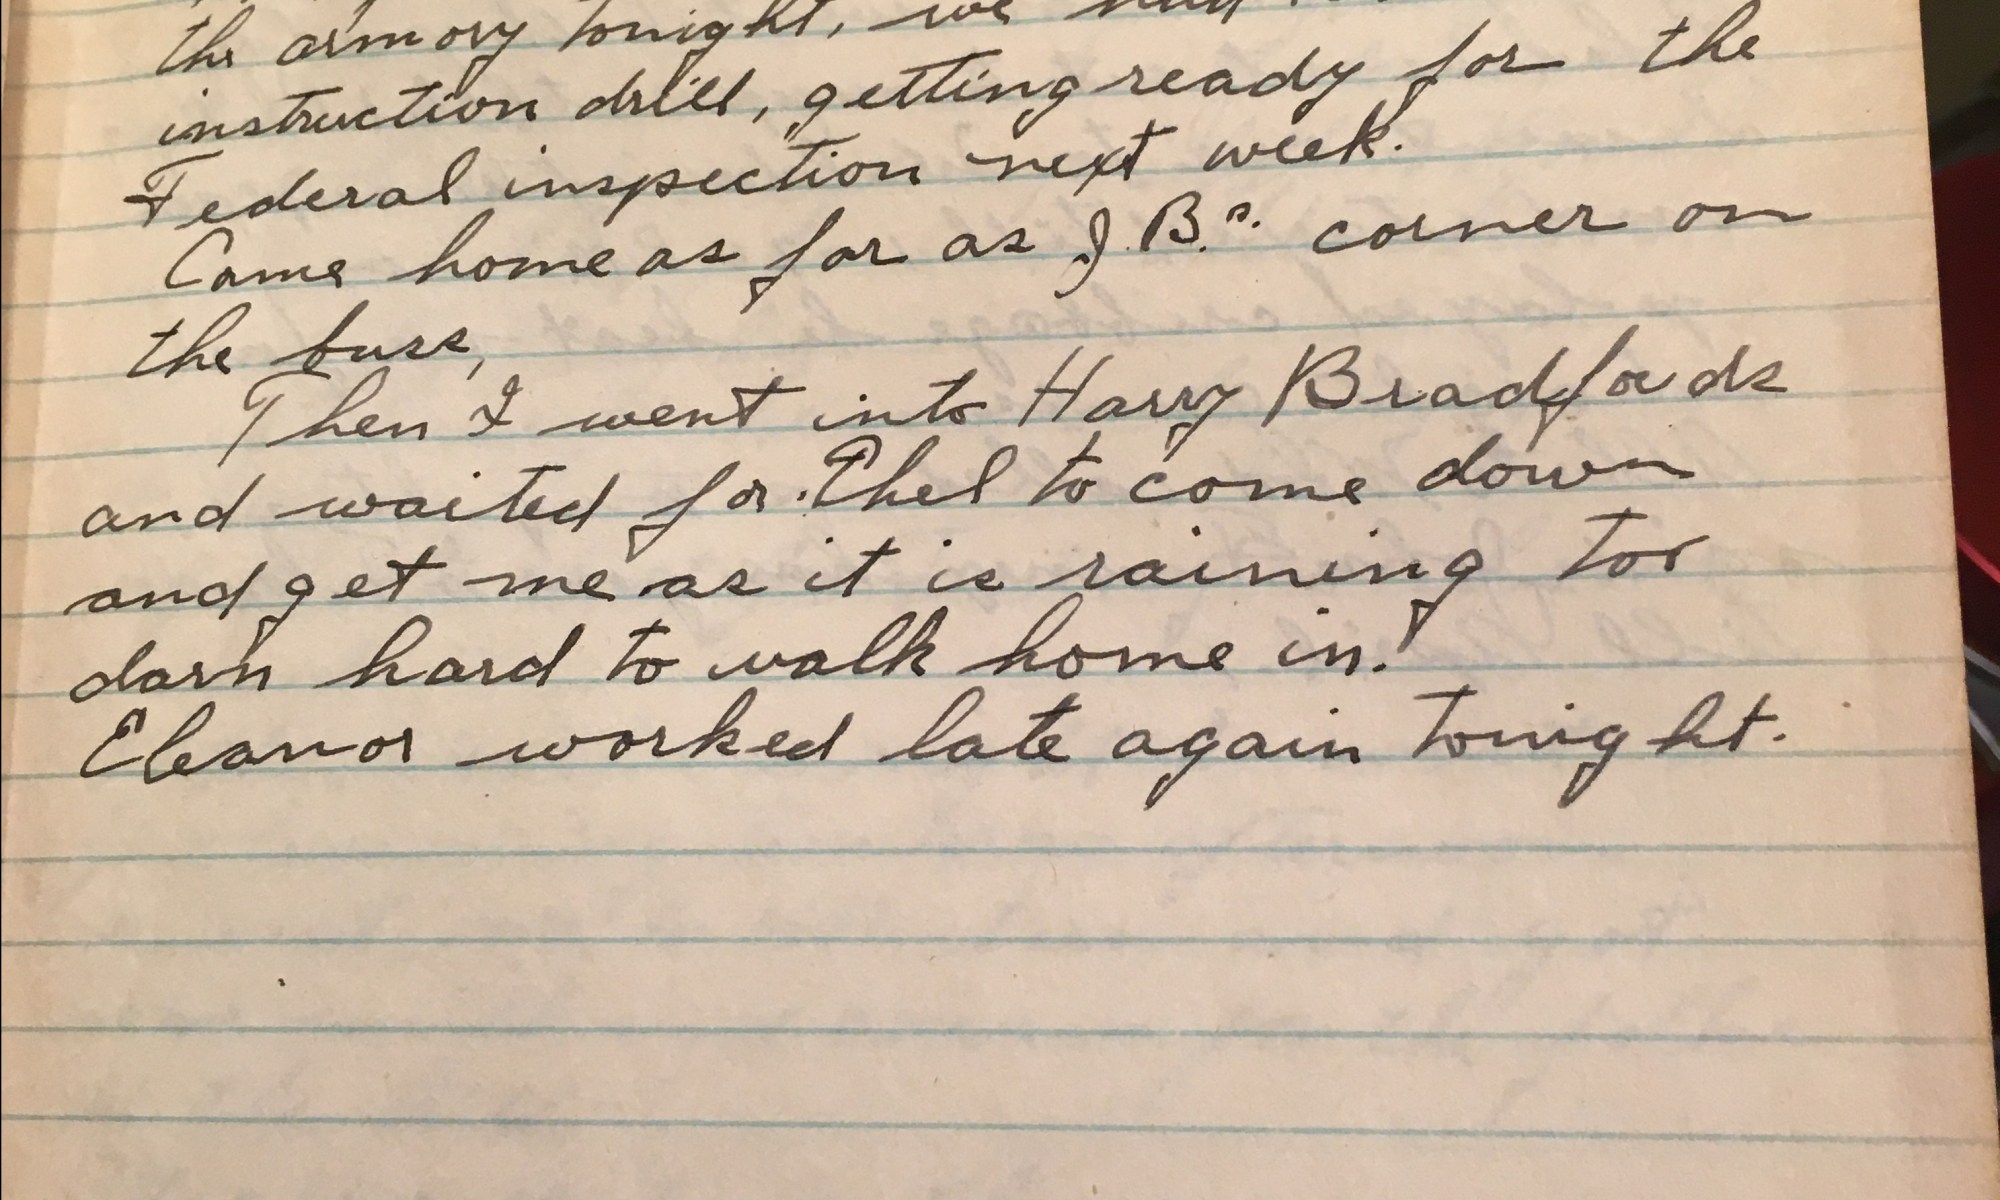 the armory tonight, we had
instruction drill, getting ready for the
Federal inspection next week.
Came home as far as J.B.s. corner on
the buss,
Then I went into Harry Bradfords
and waited for Phel to come down
and get me as it is raining too
darn hard to walk home in.
Eleanor worked late again tonight.